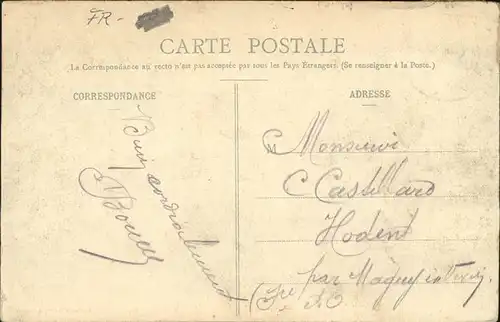 FR-
CARTE POSTALE
La Correspondance au recto n'est pas acceptée par tous les Pays Étrangers. (Se renseigner à la Poste.)
CORRESPONDANCE
Bien cordialement
ADRESSE
Monsieur
C Castellard
Hodent
par Magny en Vexin
S. O.